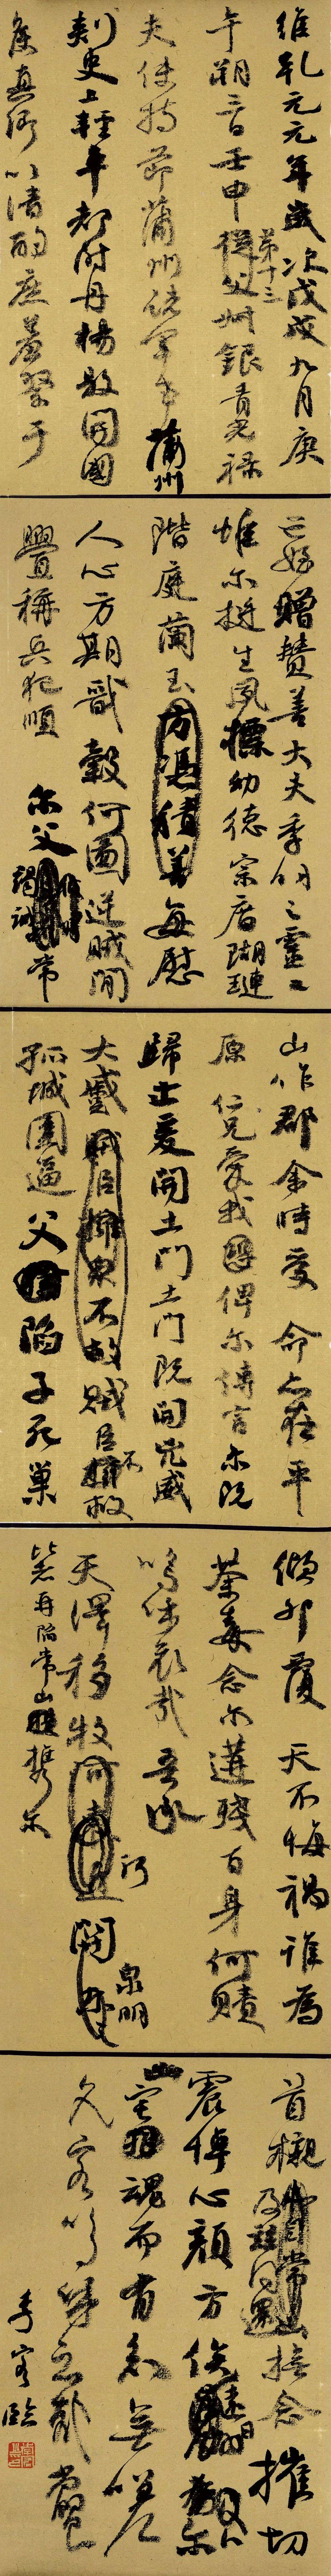 維乾元元年歲次戊戌九月庚
午朔三日壬申第十三從父叔銀青光祿
夫使持節蒲州諸軍事蒲州
刺史上輕車都尉丹楊縣開國
侯真卿以清酌庶羞祭于
亡姪贈贊善大夫季明之靈曰
惟爾挺生夙標幼德宗廟瑚璉
階庭蘭玉方憑積善每慰
人心方期戩穀何圖逆賊閒
釁稱兵犯順爾父竭誠常
山作郡余時受命亦在平
原仁兄愛我俾爾傳言爾既
歸止爰開土門土門既開兇威
大蹙賊臣擁眾不救賊臣不救
孤城圍逼父陷子死巢
傾卵覆天不悔禍誰為
荼毒念爾遘殘百身何贖
嗚呼哀哉吾承
天澤移牧河關泉明
比者再陷常山攜爾
首櫬及茲同還撫念摧切
震悼心顏方俟遠日卜爾
幽宅魂而有知無嗟
久客嗚呼哀哉尚饗
臨